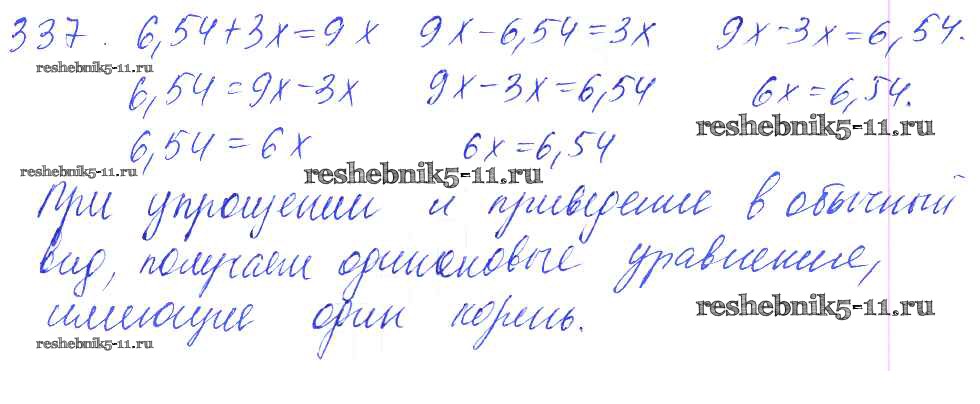 337. 6,54+3x=9x 9x-6,54=3x 9x-3x=6,54.
reshebnik5-11.ru
6,54=9x-3x 9x-3x=6,54 6x=6,54.
reshebnik5-11.ru
6,54=6x 6x=6,54
reshebnik5-11.ru reshebnik5-11.ru
При упрощении и приведение в обычный
вид, получаем одинаковые уравнение,
имеющие один корень.
reshebnik5-11.ru
reshebnik5-11.ru